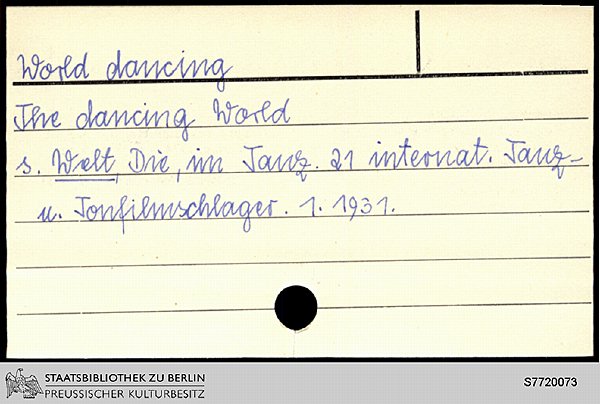 World dancing
The dancing World
s. Welt, Die, im Tanz. 21 internat. Tanz-
u. Tonfilmschlager. 1. 1931.
STAATSBIBLIOTHEK ZU BERLIN
PREUSSISCHER KULTURBESITZ
S7720073